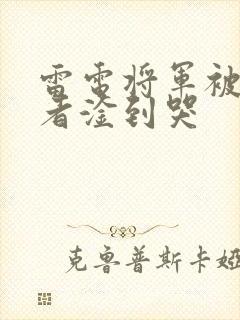 雷电将军被
者淦到哭
克鲁普斯卡娅